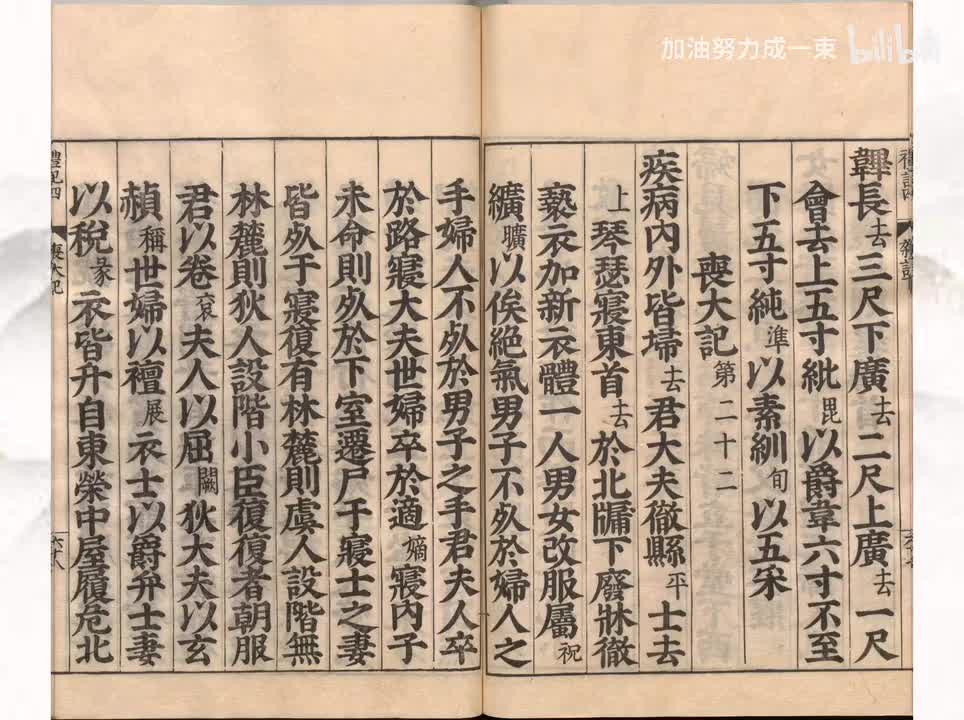 加油努力成一束 bilibili
韠長去三尺下廣去二尺上廣去一尺
會去上五寸紕毘以爵韋六寸不至
下五寸純準以素紃旬以五采
喪大記第二十二
疾病內外皆埽去君大夫徹縣平士去
上琴瑟寢東首去於北牖下廢牀徹
褻衣加新衣體一人男女改服屬祝
纊曠以俟絕氣男子不㱙於婦人之
手婦人不㱙於男子之手君夫人卒
於路寢大夫世婦卒於適嫡寢內子
未命則㱙於下室遷尸于寢士之妻
皆㱙于寢復有林麓則虞人設階無
林麓則狄人設階小臣復復者朝服
君以卷袞夫人以屈闕狄大夫以玄
赬稱世婦以襢展衣士以爵弁士妻
以稅彖衣皆升自東榮中屋履危北
禮記四 喪大記 六十八